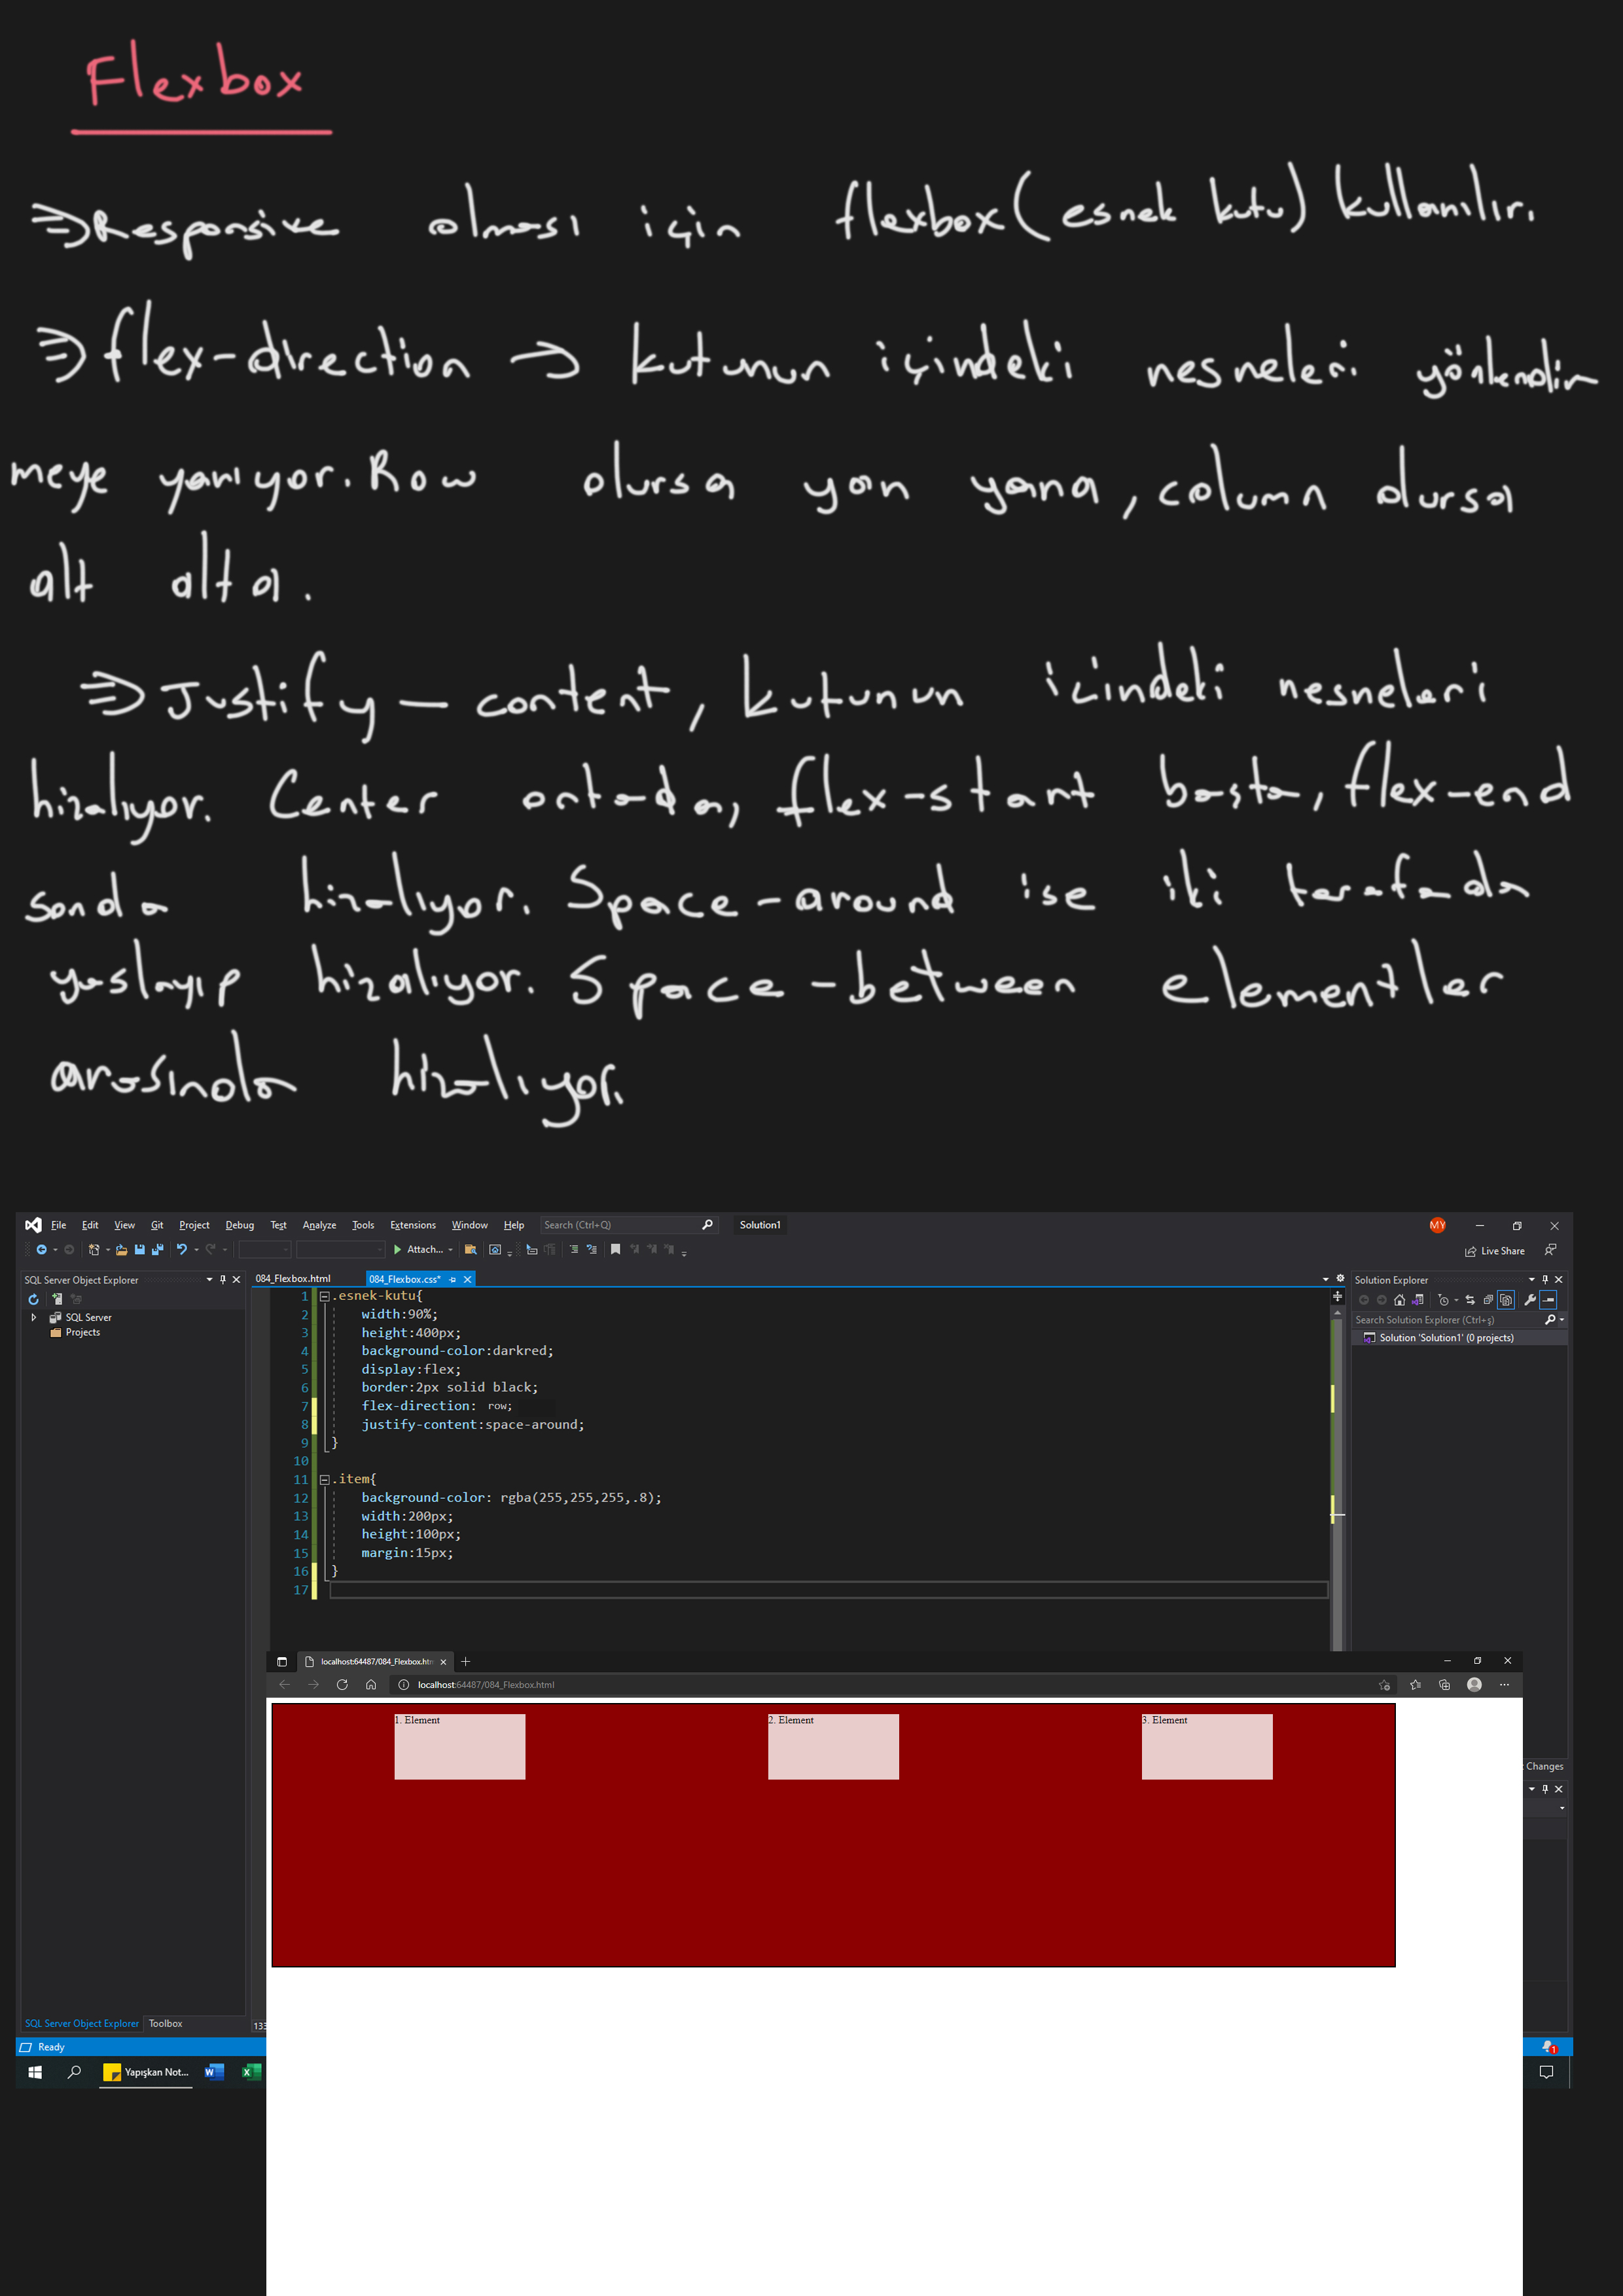 Flexbox
⇒Responsive olması için flexbox(esnek kutu) kullanılır.
⇒flex-direction → kutunun içindeki nesneleri yönlendir
meye yarıyor. Row olursa yan yana, column olursa
alt alta.
⇒Justify-content, kutunun içindeki nesneleri
hizalıyor. Center ortada, flex-start başta, flex-end
sonda hizalıyor. Space-around ise iki tarafada
yaslayıp hizalıyor. Space-between elementler
arasında hizalıyor.
File Edit View Git Project Debug Test Analyze Tools Extensions Window Help Search (Ctrl+Q) Solution1 MY
Attach... Live Share
SQL Server Object Explorer 084_Flexbox.html 084_Flexbox.css* Solution Explorer
SQL Server
Projects
Search Solution Explorer (Ctrl+ş)
Solution 'Solution1' (0 projects)
1 .esnek-kutu{
2 width:90%;
3 height:400px;
4 background-color:darkred;
5 display:flex;
6 border:2px solid black;
7 flex-direction: row;
8 justify-content:space-around;
9 }
10
11 .item{
12 background-color: rgba(255,255,255,.8);
13 width:200px;
14 height:100px;
15 margin:15px;
16 }
17
localhost:64487/084_Flexbox.htm
localhost:64487/084_Flexbox.html
1. Element 2. Element 3. Element
Changes
SQL Server Object Explorer Toolbox 133
Ready 1
Yapışkan Not...